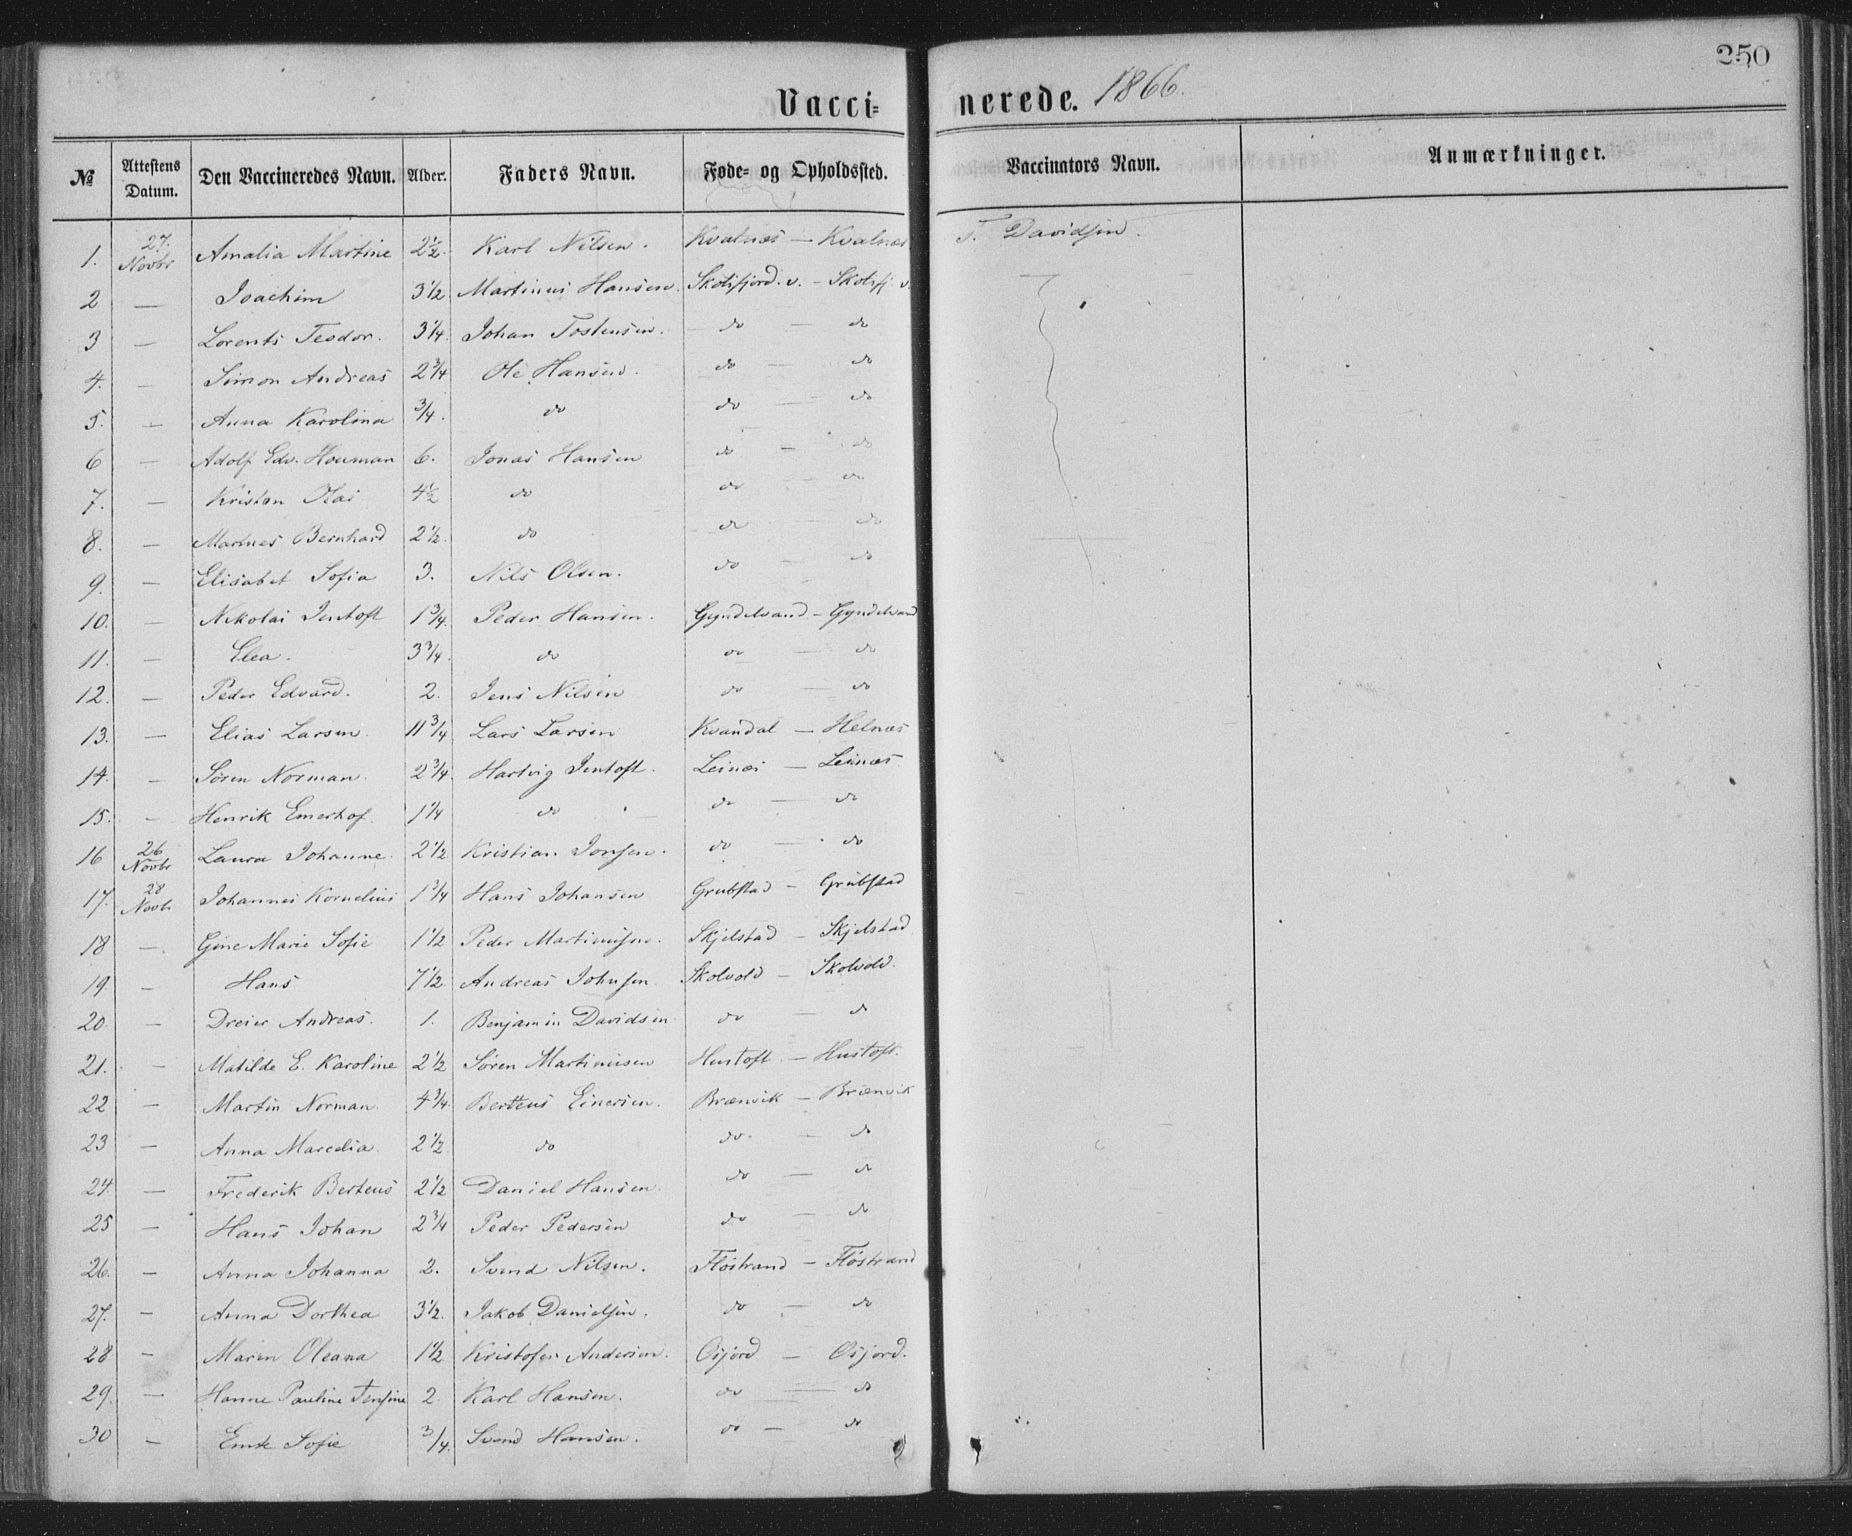 250
Vacci- nerede. 1866.
№ Attestens Datum. Den Vaccineredes Navn. Alder. Faders Navn. Føde- og Opholdssted. Vaccinators Navn. Anmærkninger.
1. 27. Novbr Amalia Martine 2½. Karl Nilsen. Kvalnæs — Kvalnæs Davidsen.
2 — Joachim 3½ Martinus Hansen. Skotsfjord. v. — Skotsfj. v.
3 — Lorents Teodor. 3¼. Johan Tostensen. do — do
4. — Simon Andreas 2¾ Ole Hansen. do — do
5. — Anna Karolina ¾. do do — do
6 — Adolf Edv. Houman 6. Jonas Hansen do — do
7. — Kristen Olai 4½ do do — do
8. — Martnes Bernhard 2½. do do — do
9. — Elisabet Sofia 3. Nils Olsen. do — do
10. — Nikolai Jentoft 1¾. Peder Hansen. Gyndelvand — Gyndelvand
11. — Elea. 3¾. do do — do
12. — Peder Edvard. 2. Jens Nilsen do — do
13. — Elias Larsen 11¾ Lars Larsen Kvandal — Helnæs
14. — Søren Norman. 2¾. Hartvig Jentoft. Leinæs — Leinæs.
15. — Henrik Emerhof. 1¼ do do — do
16 26 Novbr Laura Johanne. 2½ Kristian Jonsen. do — do
17. 28 Novbr Johannes Kornelius 1¾ Hans Johansen Grubstad — Grubstad
18 — Gine Marie Sofie 1½ Peder Martinusen. Skjelstad — Skjelstad
19. — Hans 7½. Andreas Johnsen. Skolvold — Skolvold.
20. — Dreier Andreas. 1. Benjamin Davidsen do — do
21. — Matilde E. Karoline 2½ Søren Martinusen Hustoft. — Hustoft.
22 — Martin Norman. 4¾. Berteus Einersen. Brænvik — Brænvik
23 — Anna Marcelia. 2½. do do. — do
24. — Frederik Berteus 2½ Daniel Hansen. do — do
25 — Hans Johan 2¾ Peder Pedersen do — do
26. — Anna Johanna 2. Svend Nilsen. Fløstrand — Fløstrand
27. — Anna Dorthea 3½. Jakob Danielsen. do — do
28 — Maren Oleana 1½ Kristofer Andersen. Osjord — Osjord.
29. — Hanne Pauline Jensine 2. Karl Hansen. do — do
30 — Sofie ¾. Svend Hansen. do — do